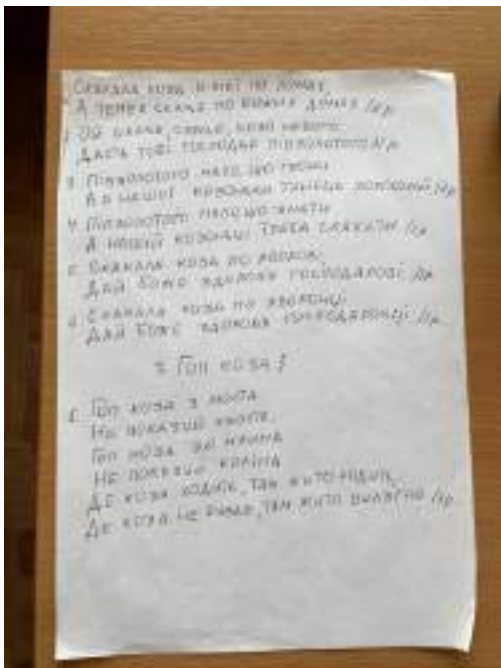 Скакала коза
А тепер скаче по Божих домах /пр
2. Ой скачи, скачи, козо небого
Дасть тобі господар півзолотого /пр
3. Півзолотого мало що
А в нашої козоньки /пр
4. Півзолотого мало що знати
А нашій козоньці треба скакати /пр
5. Скакала коза по
Дай Боже здоровя господарові /пр
6. Скакала коза по
Дай Боже здоровя господароньці /пр
Гоп коза
1. Гоп коза з моста
Не показуй хвоста,
Гоп коза до
Не показуй коліна
Де коза ходить, там жито родить,
Де коза не буває, там жито вилягає /пр